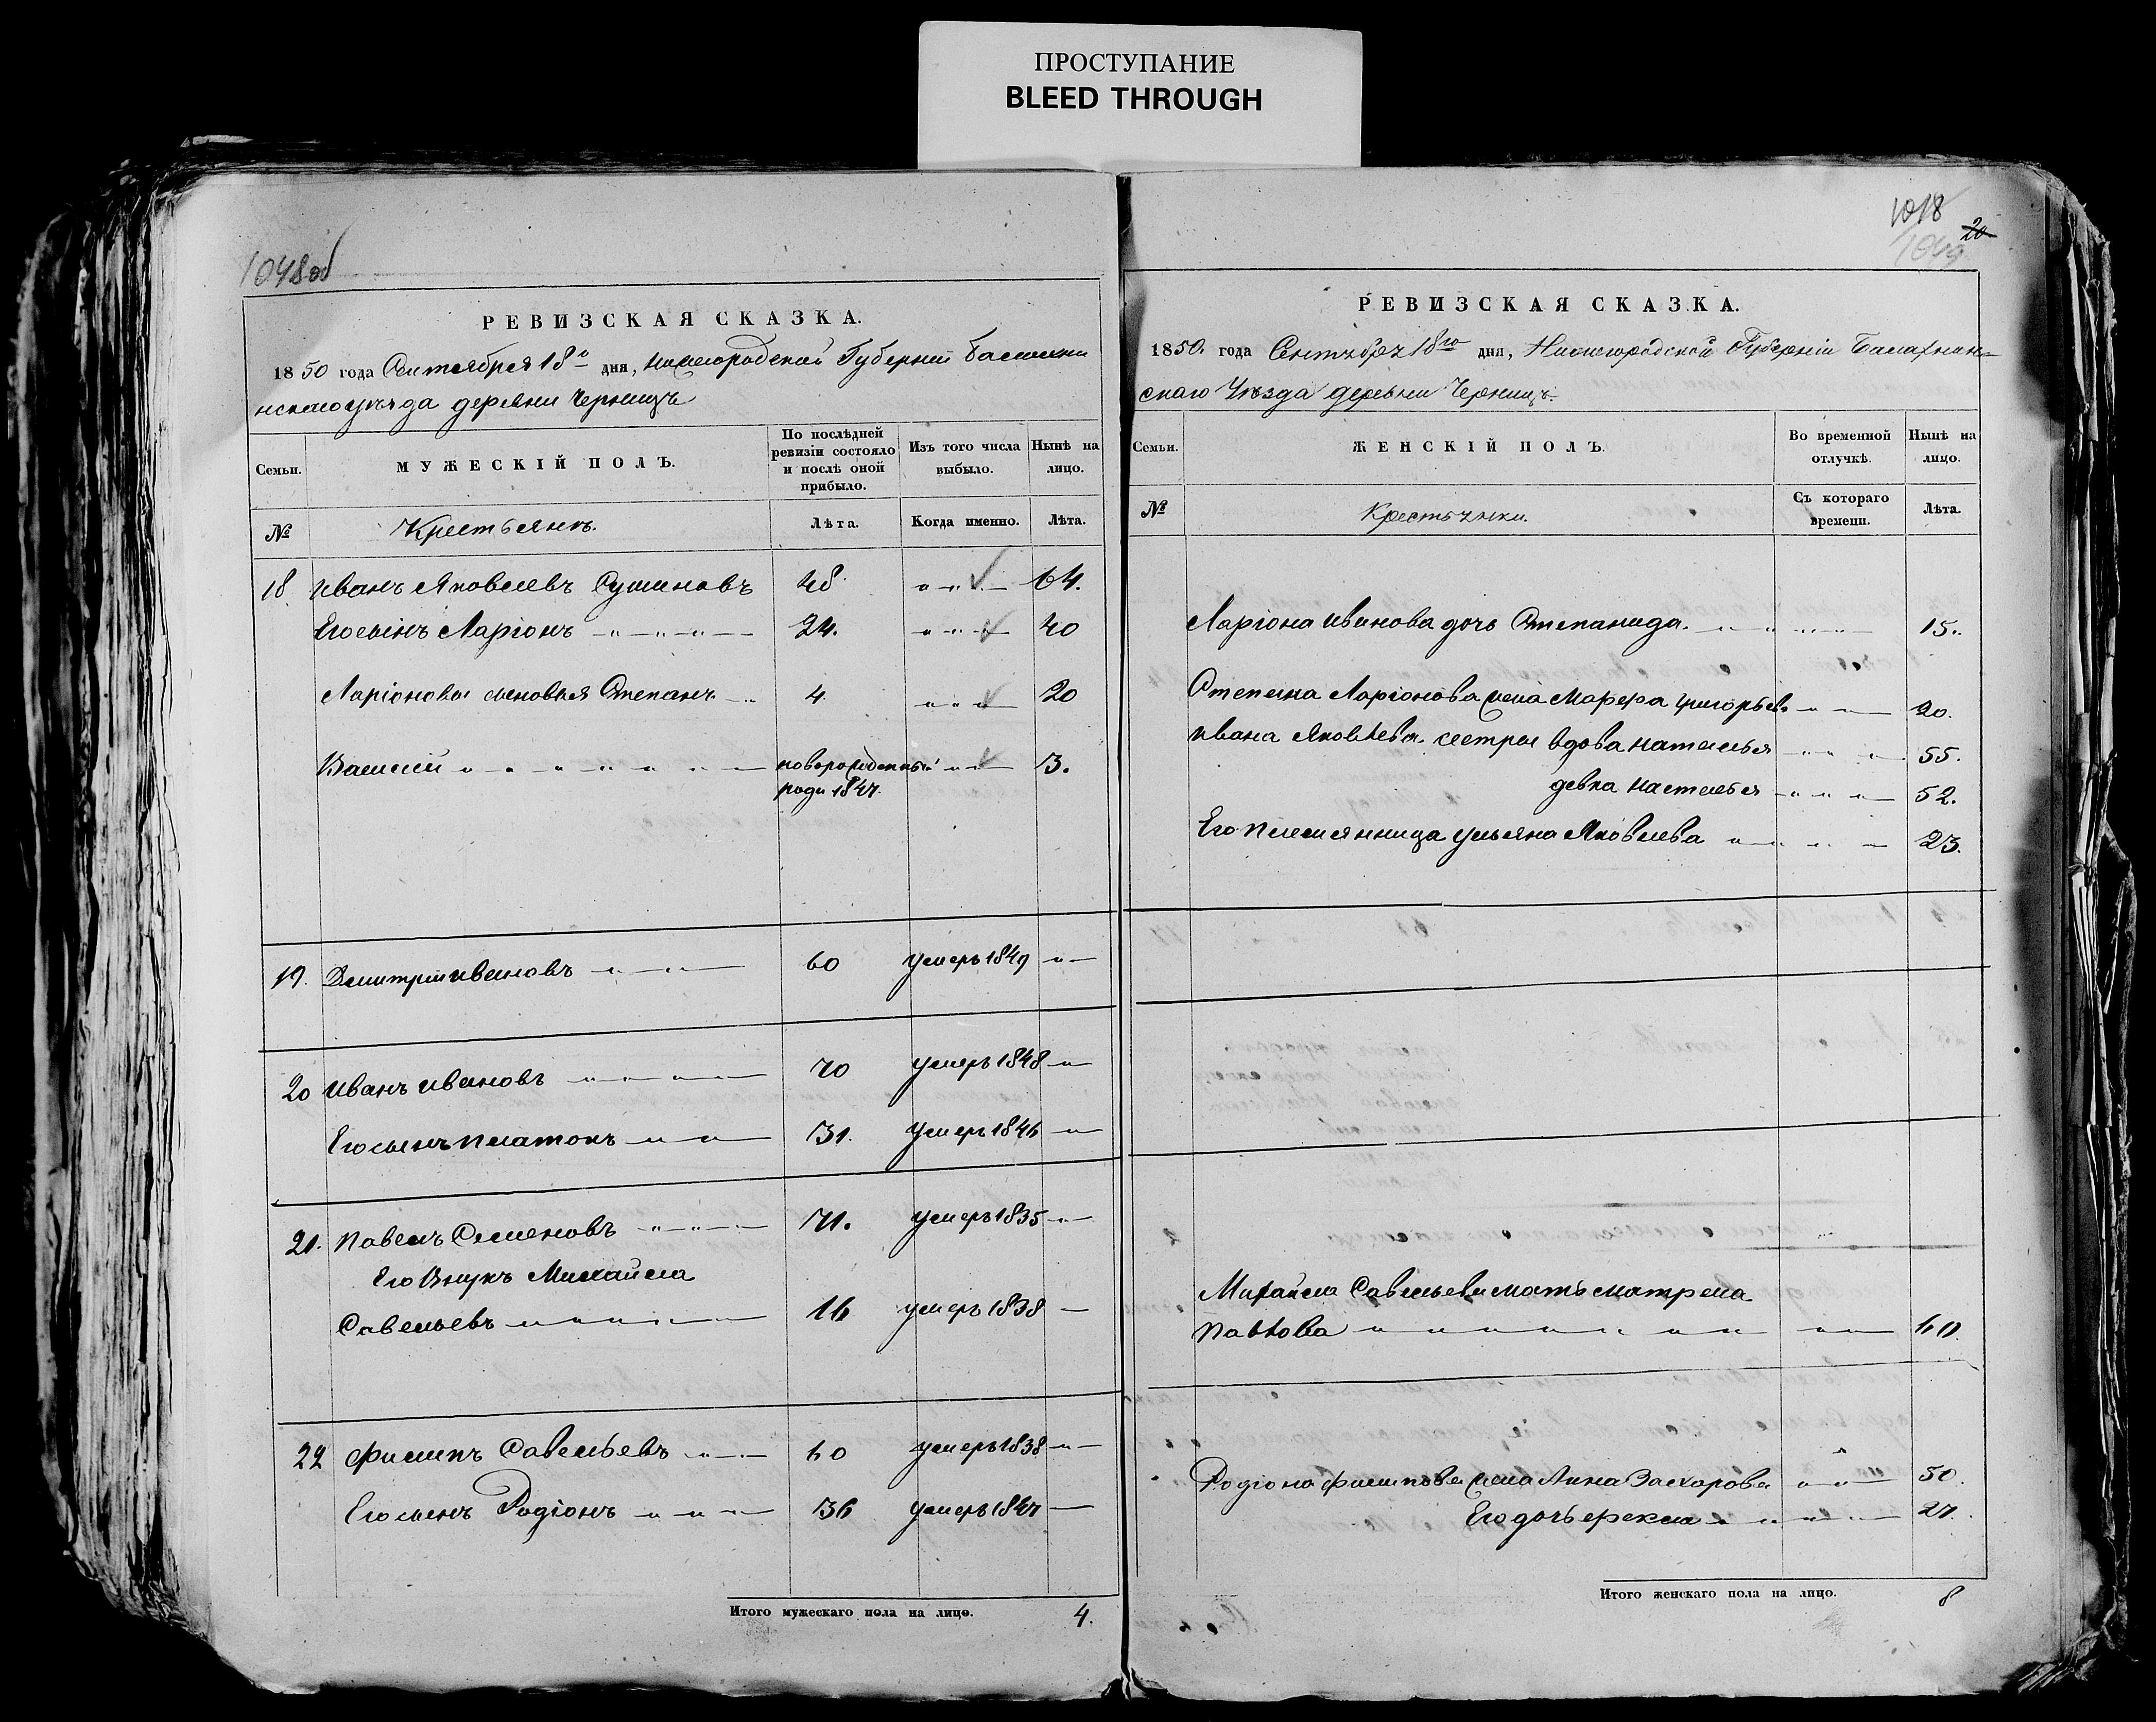 ПРОСТУПАНИЕ
BLEED THROUGH
1048 об
РЕВИЗСКАЯ СКАЗКА.
1850 года Сентября 18го дня, Нижегородской Губерніи Балахни
нскаго уѣзда деревни Черницъ
Семьи. МУЖЕСКІЙ ПОЛЪ. По послѣдней ревизіи состояло и послѣ оной прибыло. Изъ того числа выбыло. Нынѣ на лицо.
№ Крестьянъ. Лѣта. Когда именно. Лѣта.
18 Иванъ Яковлевъ 48 64.
Его сынъ Ларіонъ 24. 40
Ларіоновы сыновья Степанъ 4 20
Василій новорожденный 3.
роди 1847.
19. Дмитрій Ивановъ 60 умеръ 1849
20 Иванъ Ивановъ 70 умеръ 1848
Его сынъ Платонъ 31. умеръ 1846
21. Павелъ Семеновъ 71. умеръ 1835
Его Внукъ Михайла
Савельевъ 16 умеръ 1838
22 Филипъ Савельевъ 60 умеръ 1838
Его сынъ Родіонъ 36 умеръ 1847
Итого мужескаго пола на лицо. 4.
1018
1049 20
РЕВИЗСКАЯ СКАЗКА.
1850. года Сентября 18го дня, Нижегородской Губерніи Балахнин-
скаго Уѣзда деревни Черницъ.
Семьи. ЖЕНСКІЙ ПОЛЪ. Во временной отлучкѣ. Нынѣ на лицо.
№ Крестьянки. Съ котораго времени. Лѣта.
Ларіона Иванова дочь Степанида. 15.
Степана Ларіонова жена Марфа Григорьева 20.
Ивана Яковлева сестры вдова Наталья 55.
девка Настасья 52.
Его племянница Ульяна Яковлева 23.
Михайла Савельева мать Матрена
Павлова 60
Родіона Филипова жена Анна Захарова 50.
Его дочь Фекла 27.
Итого женскаго пола на лицо. 8